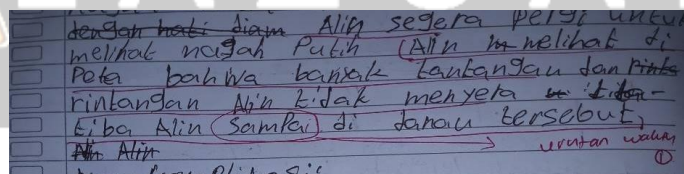 dengan hati diam Alin segera pergi untuk
melihat nagah Putih (Alin m melihat di
Peta bahwa banyak tantangan dan rinta
rintangan Alin tidak menyera tiba-
tiba Alin (Sampai) di danau tersebut,
Alin urutan waktu
①